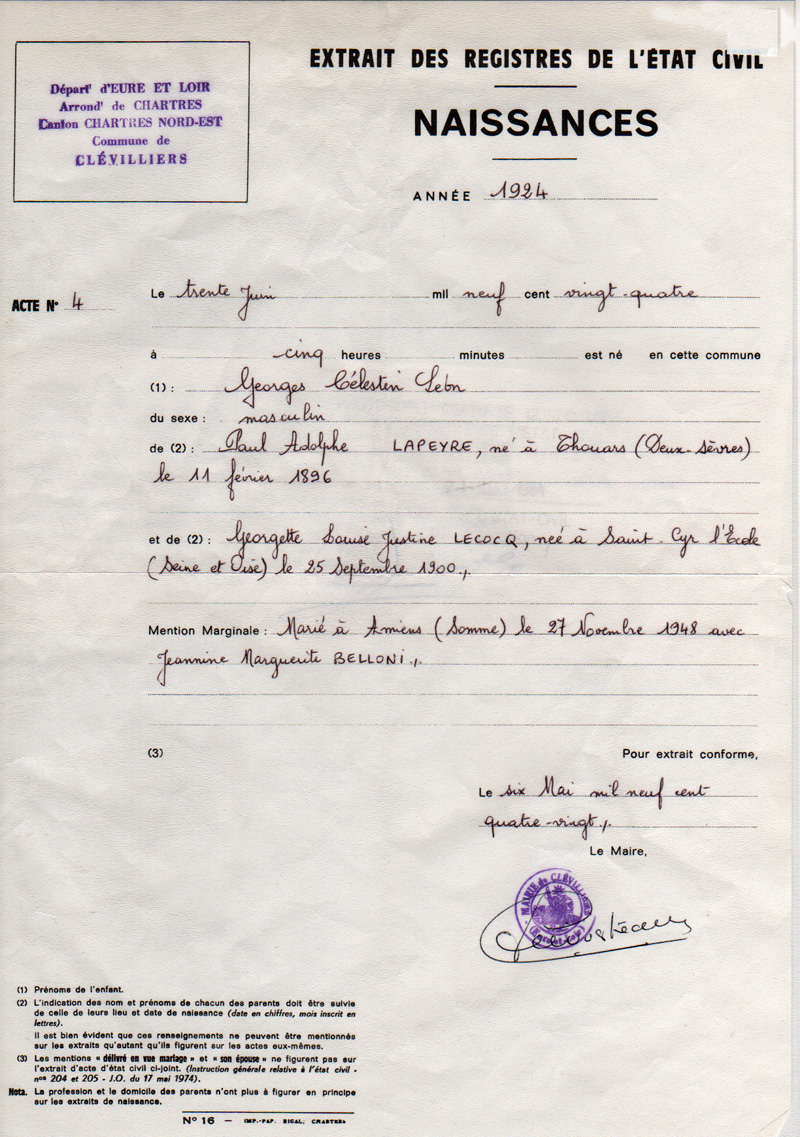 Départ^t d'EURE ET LOIR
Arrond^t de CHARTRES
Canton CHARTRES NORD-EST
Commune de
CLÉVILLIERS
EXTRAIT DES REGISTRES DE L'ÉTAT CIVIL
NAISSANCES
ANNÉE 1924
ACTE N° 4
Le trente Juin mil neuf cent vingt-quatre
à cinq heures minutes est né en cette commune
(1) : Georges Célestin Léon
du sexe : masculin
de (2) : Paul Adolphe LAPEYRE, né à Thouars (Deux-Sèvres)
le 11 février 1896
et de (2) : Georgette Louise Justine LECOCQ, née à Saint-Cyr l'Ecole
(Seine et Oise) le 25 Septembre 1900.,
Mention Marginale : Marié à Amiens (Somme) le 27 Novembre 1948 avec
Jeannine Marguerite BELLONI.,
(3) Pour extrait conforme,
Le six Mai mil neuf cent
quatre-vingt.,
Le Maire,
MAIRIE de CLÉVILLIERS
(Eure-et-Loir)
(1) Prénoms de l'enfant.
(2) L'indication des nom et prénoms de chacun des parents doit être suivie
de celle de leurs lieu et date de naissance (date en chiffres, mois inscrit en
lettres).
Il est bien évident que ces renseignements ne peuvent être mentionnés
sur les extraits qu'autant qu'ils figurent sur les actes eux-mêmes.
(3) Les mentions « délivré en vue mariage » et « son épouse » ne figurent pas sur
l'extrait d'acte d'état civil ci-joint. (Instruction générale relative à l'état civil -
nos 204 et 205 - J.O. du 17 mai 1974).
Nota. La profession et le domicile des parents n'ont plus à figurer en principe
sur les extraits de naissance.
N° 16 — IMP.-PAP. RIGAL, CHARTRES